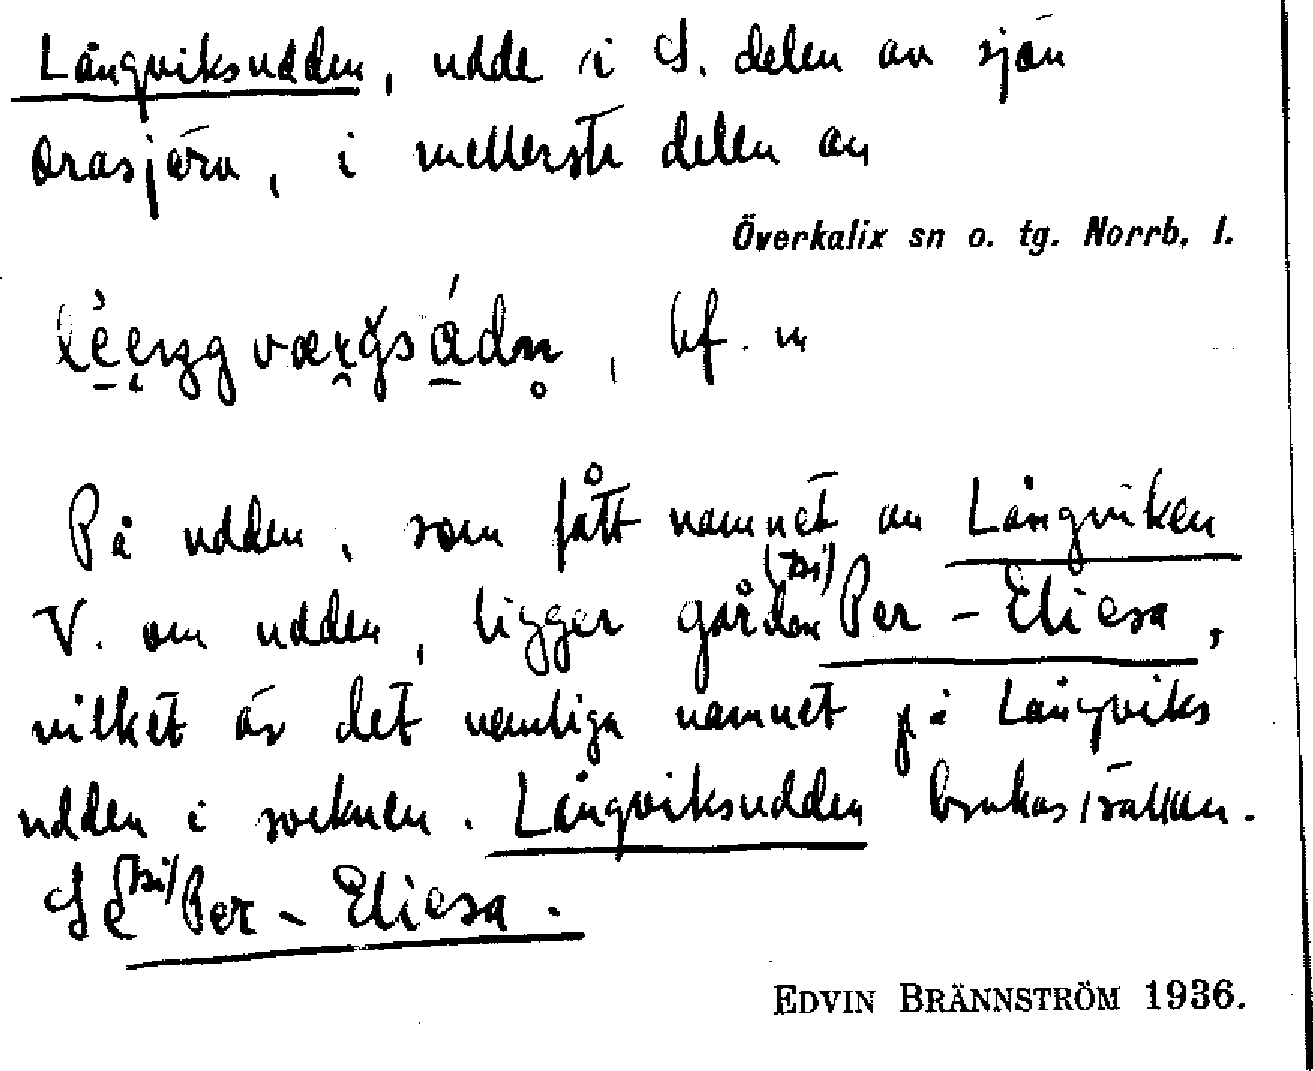 Långviksudden, udde i S. delen av sjön
Orasjärv, i mellersta delen av
Överkalix sn o. tg. Norrb. l.
bf. m
På udden, som fått namnet av Långviken
V. om udden, ligger gården (Di) Per-Eliesa,
vilket är det vanliga namnet på Långviks
udden i socknen. Långviksudden brukas sällan.
Se (Di) Per-Eliesa.
EDVIN BRÄNNSTRÖM 1936.